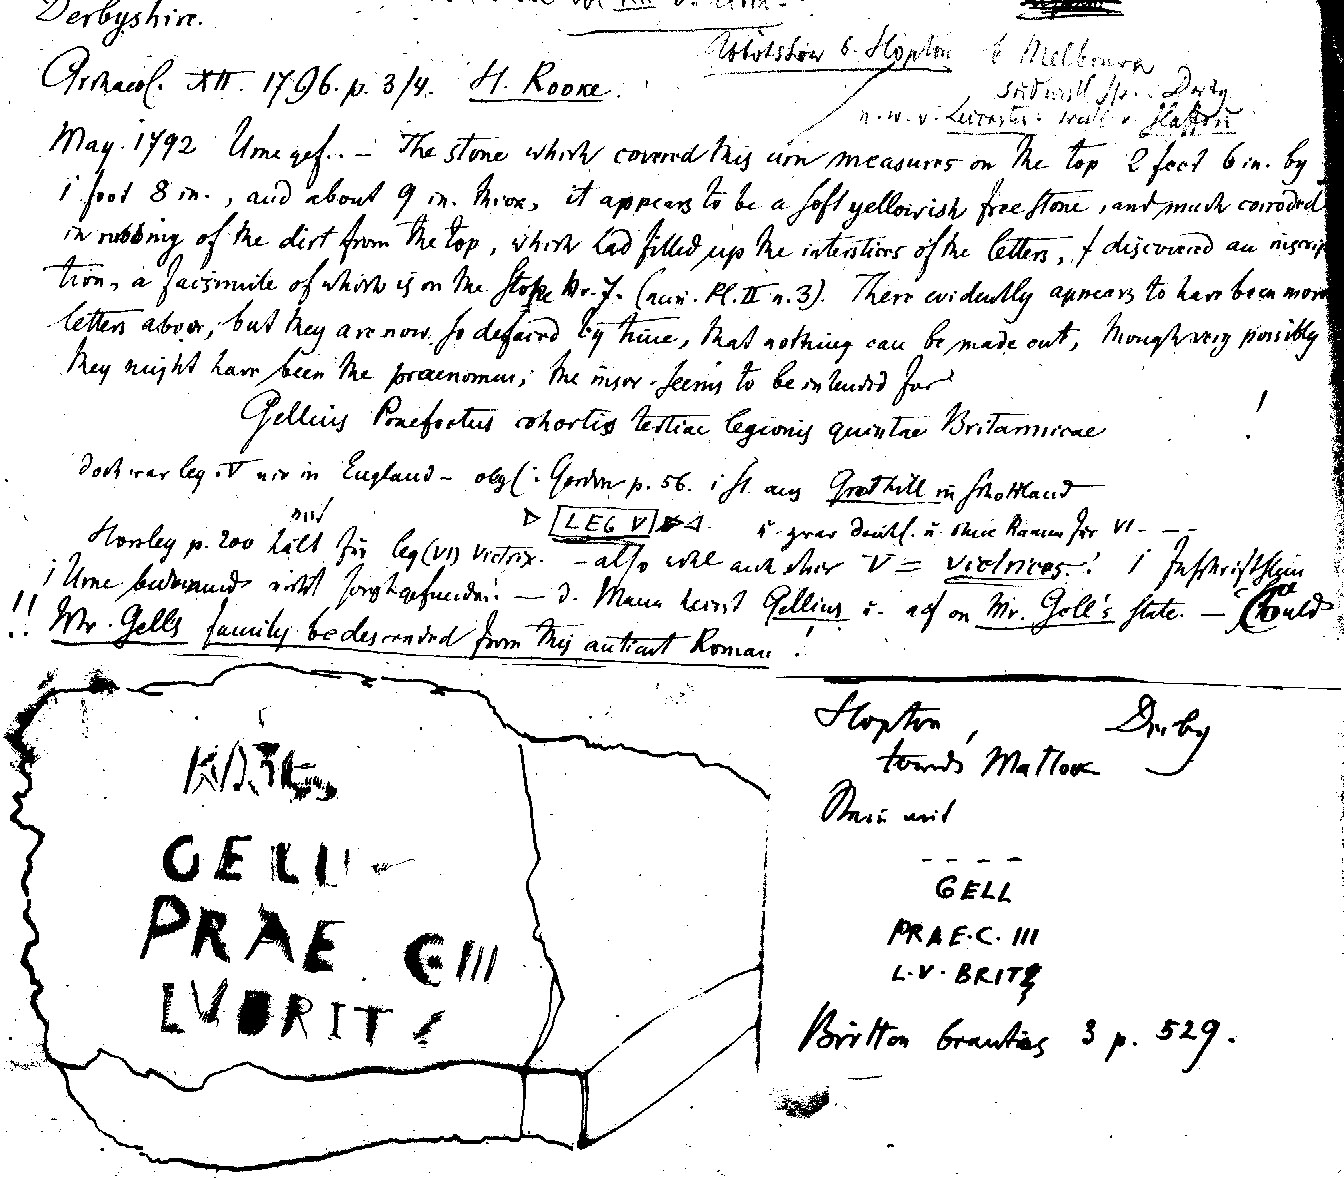 Derbyshire.
Archaeol. XII. 1796. p. 3/4. H. Rooke.
b. Hopton b Melbourn
Derby
n.w.v. Leicester
May. 1792 Urne gef.. – The stone which covered this urn measures on the top 2 feet 6 in. by
1 foot 8 in., and about 9 in. thick, it appears to be a soft yellowish free stone, and much corroded
in rubbing of the dirt from the top, which had filled up the interstices of the letters, I discovered an inscrip
tion, a facsimile of which is on the Nr. 7. (num. Pl. II n. 3). There evidently appears to have been more
letters above, but they are now so defaced by time, that nothing can be made out, though very possibly
they might have been the praenomen; the inscr. seems to be intended for
Gellius Praefectus cohortis tertiae legionis quintae Britannicae !
doch war leg. V nie in England – Gordon p. 56. aus in Schottland
LEG V
Horsley p. 200 hält für leg (VI) Victrix. – also wohl auch hier V = victrices! Inschriftstein
Urne nicht – d. Mann heisst Gellius u. auf on Mr. Gell's state. – Could
!! Mr. Gells family be descended from this antient Roman !
GELL
PRAE C III
LVBRIT
Hopton, Derby
towards Matlock
Stein mit
- - - -
GELL
PRAE.C. III
L.V. BRIT
Britton beauties 3 p. 529.